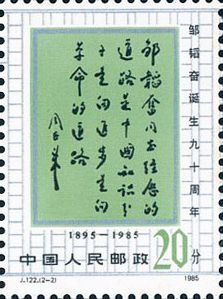 邹韬奋诞生九十周年
邹韬奋同志经历的
道路是中国知识分
子走向进步走向
革命的道路
周恩来
1895-1985
中国人民邮政
20分
J.122.(2-2)
1985